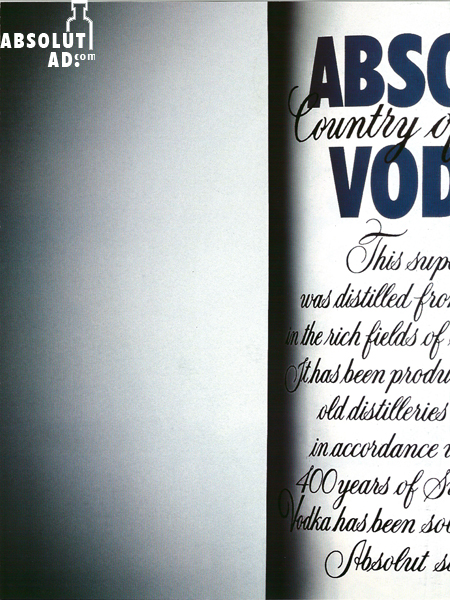 ABSOLUT
AD.com
ABSO
Country of
VOD
This sup
was distilled fro
in the rich fields of
It has been produ
old distilleries
in accordance
400 years of S
Vodka has been so
Absolut s